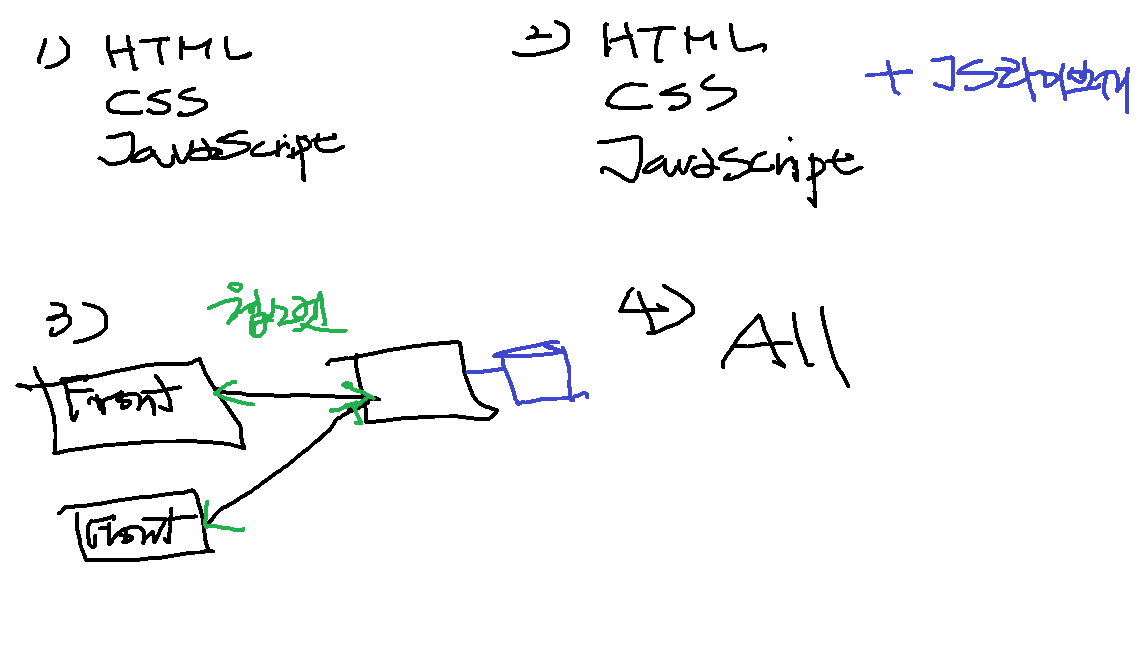 1) HTML
CSS
JavaScript
2) HTML
CSS
JavaScript
+ JS라이브러리
3)
웹소켓
Front
Front
4) All